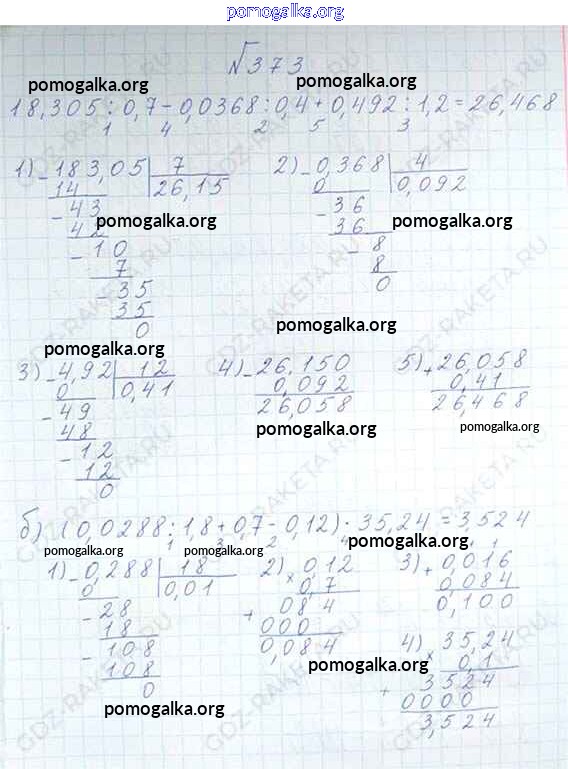 pomogalka.org
№373
pomogalka.org pomogalka.org
18,305:0,7-0,0368:0,4+0,492:1,2=26,468
1 4 2 5 3
1) -183,05 | 7 2) -0,368 | 4
14 26,15 0 0,092
-43 -36
pomogalka.org pomogalka.org
42 36
-10 -8
7 8
-35 0
35
pomogalka.org
0
3) -4,92 | 12 4) -26,150 5) +26,058
0 0,41 0,092 0,41
-49 26,058 26,468
48 pomogalka.org pomogalka.org
-12
12
0
б) (0,0288:1,8+0,7·0,12)·35,24=3,524
1 3 2 4
pomogalka.org pomogalka.org pomogalka.org
1) -0,288 | 18 2) ×0,12 3) +0,016
0 0,01 0,7 0,084
-28 084 0,100
18 +000
-108 0,084 4) ×35,24
108 pomogalka.org 0,1
0 +3524
pomogalka.org 0000
3,524
GDZ-RAKETA.RU